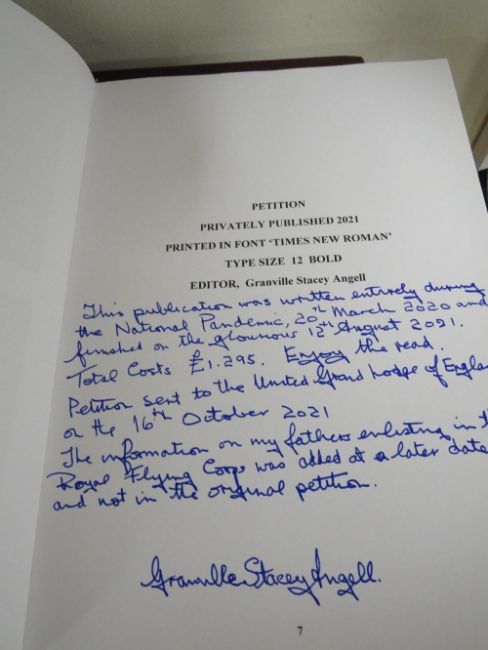 PETITION
PRIVATELY PUBLISHED 2021
PRINTED IN FONT ‘TIMES NEW ROMAN’
TYPE SIZE 12 BOLD
EDITOR, Granville Stacey Angell
This publication was written entirely during
the National Pandemic, 20th March 2020 and
finished on the glourious 12th August 2021.
Total Costs £1.295. Enjoy the read.
Petition sent to the United Grand Lodge of Engla
on the 16th October 2021
The information on my fathers enlisting in t
Royal Flying Corps was added at a later date
and not in the original petition.
Granville Stacey Angell.
7